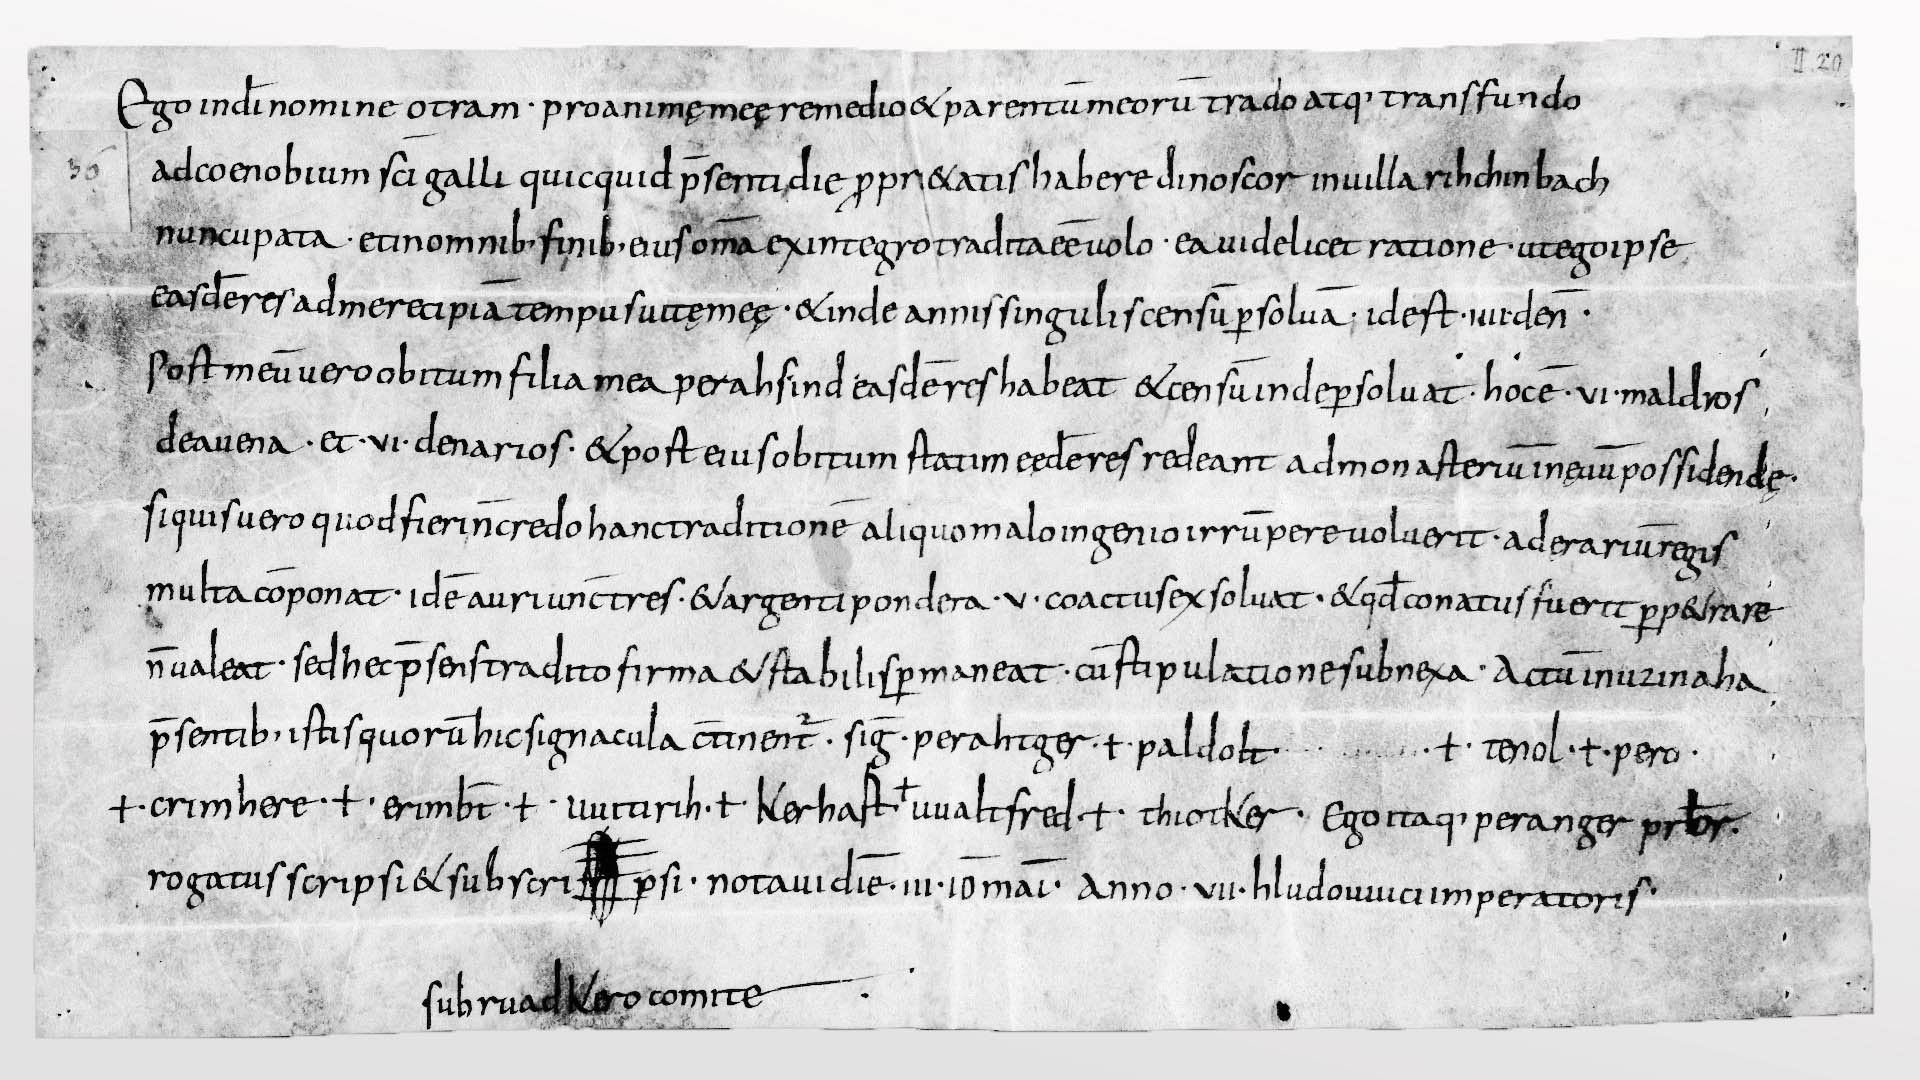 II 20
Ego indī nomine otram · pro animę meę remedio & parentū meorū trado atq; transfundo
30
ad coenobium scī galli quicquid p̄senti die ꝓpri&atis habere dinoscor in uilla rihchinbach
nuncupata · et in omnib; finib; eius om̄a ex integro tradita eē uolo · ea uidelicet ratione · ut ego ipse
easdē res ad me recipiā tempus uitę meę · & inde annis singulis censū ꝑsoluā · id est · iiii · deñ ·
Post meū uero obitum filia mea perahsind easdē res habeat & censū inde ꝑsoluat · hoc ē · vi · maldros
de auena · et · vi · denarios · & post eius obitum statim eędē res redeant ad monasteriū in ęuū possidendę ·
si quis uero quod fieri n̄ credo hanc traditionē aliquo malo ingenio irrūpere uoluerit · ad erariū regis
multa cōponat · id ē auri unc̄ tres · & argenti pondera · v · coactus exsoluat · & qd̄ conatus fuerit ꝑp&rare
n̄ ualeat · sed hec p̄sens traditio firma & stabilis ꝑmaneat · cū stipulatione subnexa · Actū in uzinaha
p̄sentib; istis quorū hic signacula c̄tinent̄ · siḡ · perahtger · + · paldolt · + · tenol · + · pero ·
+ · crimhere · + · erimb̄t · + · uuiturih · + · Kerhast + uualtfred · + · thiotker · Ego itaq; peranger prb̄r ·
rogatus scripsi & subscripsi · notaui diē · iii · id̄ mai · Anno · vii · hludouuici imperatoris ·
sub ruadkero comite